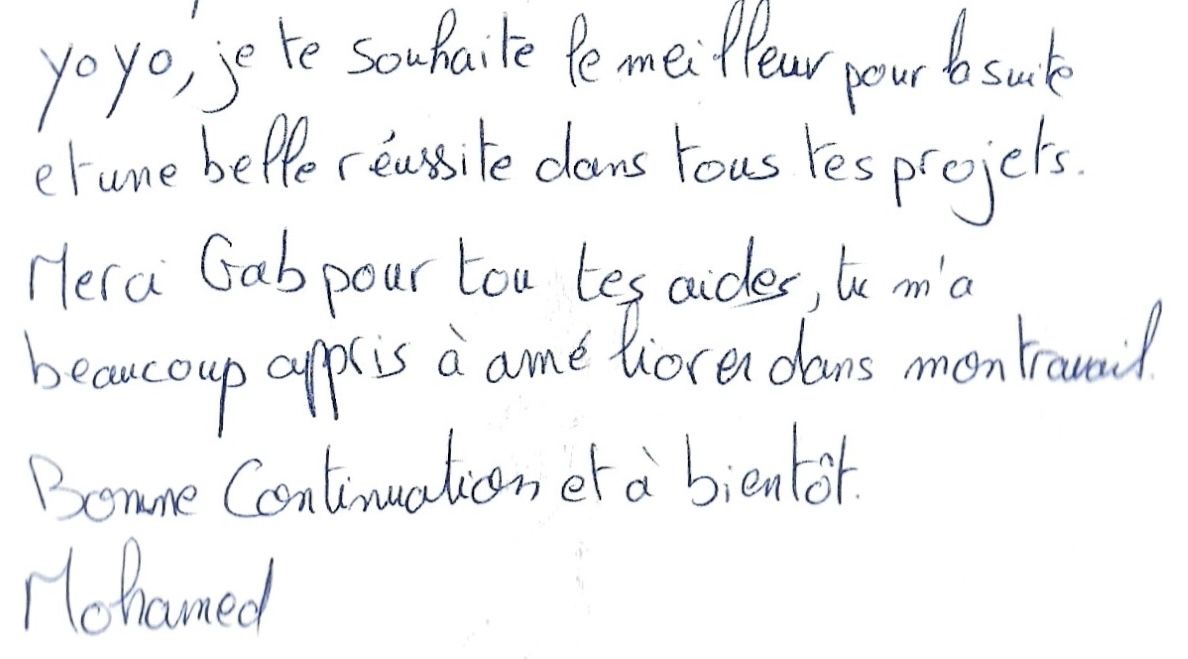 yoyo, je te souhaite le meilleur pour la suite
et une belle réussite dans tous tes projets.
Merci Gab pour tou tes aides, tu m'a
beaucoup appris à améliorer dans mon travail.
Bonne Continuation et à bientôt.
Mohamed